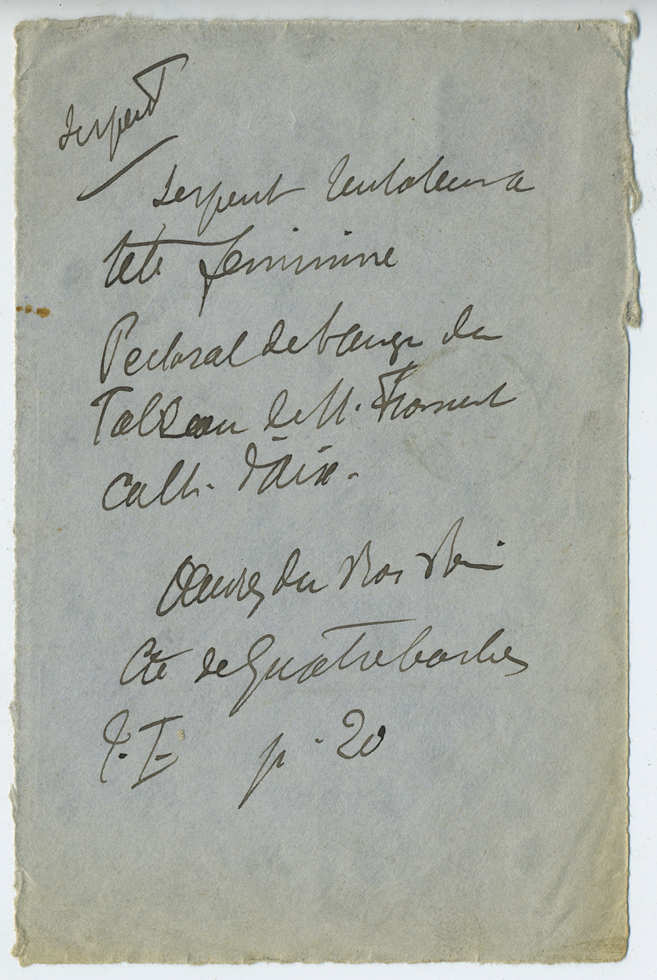 Serpent
Serpent tentateur a
tête feminine
Pectoral de l'ange du
Tableau de N. Froment
Cath. d'Aix.
Œuvres du Roi René
Cte de Quatrebarbes
T. I p. 20